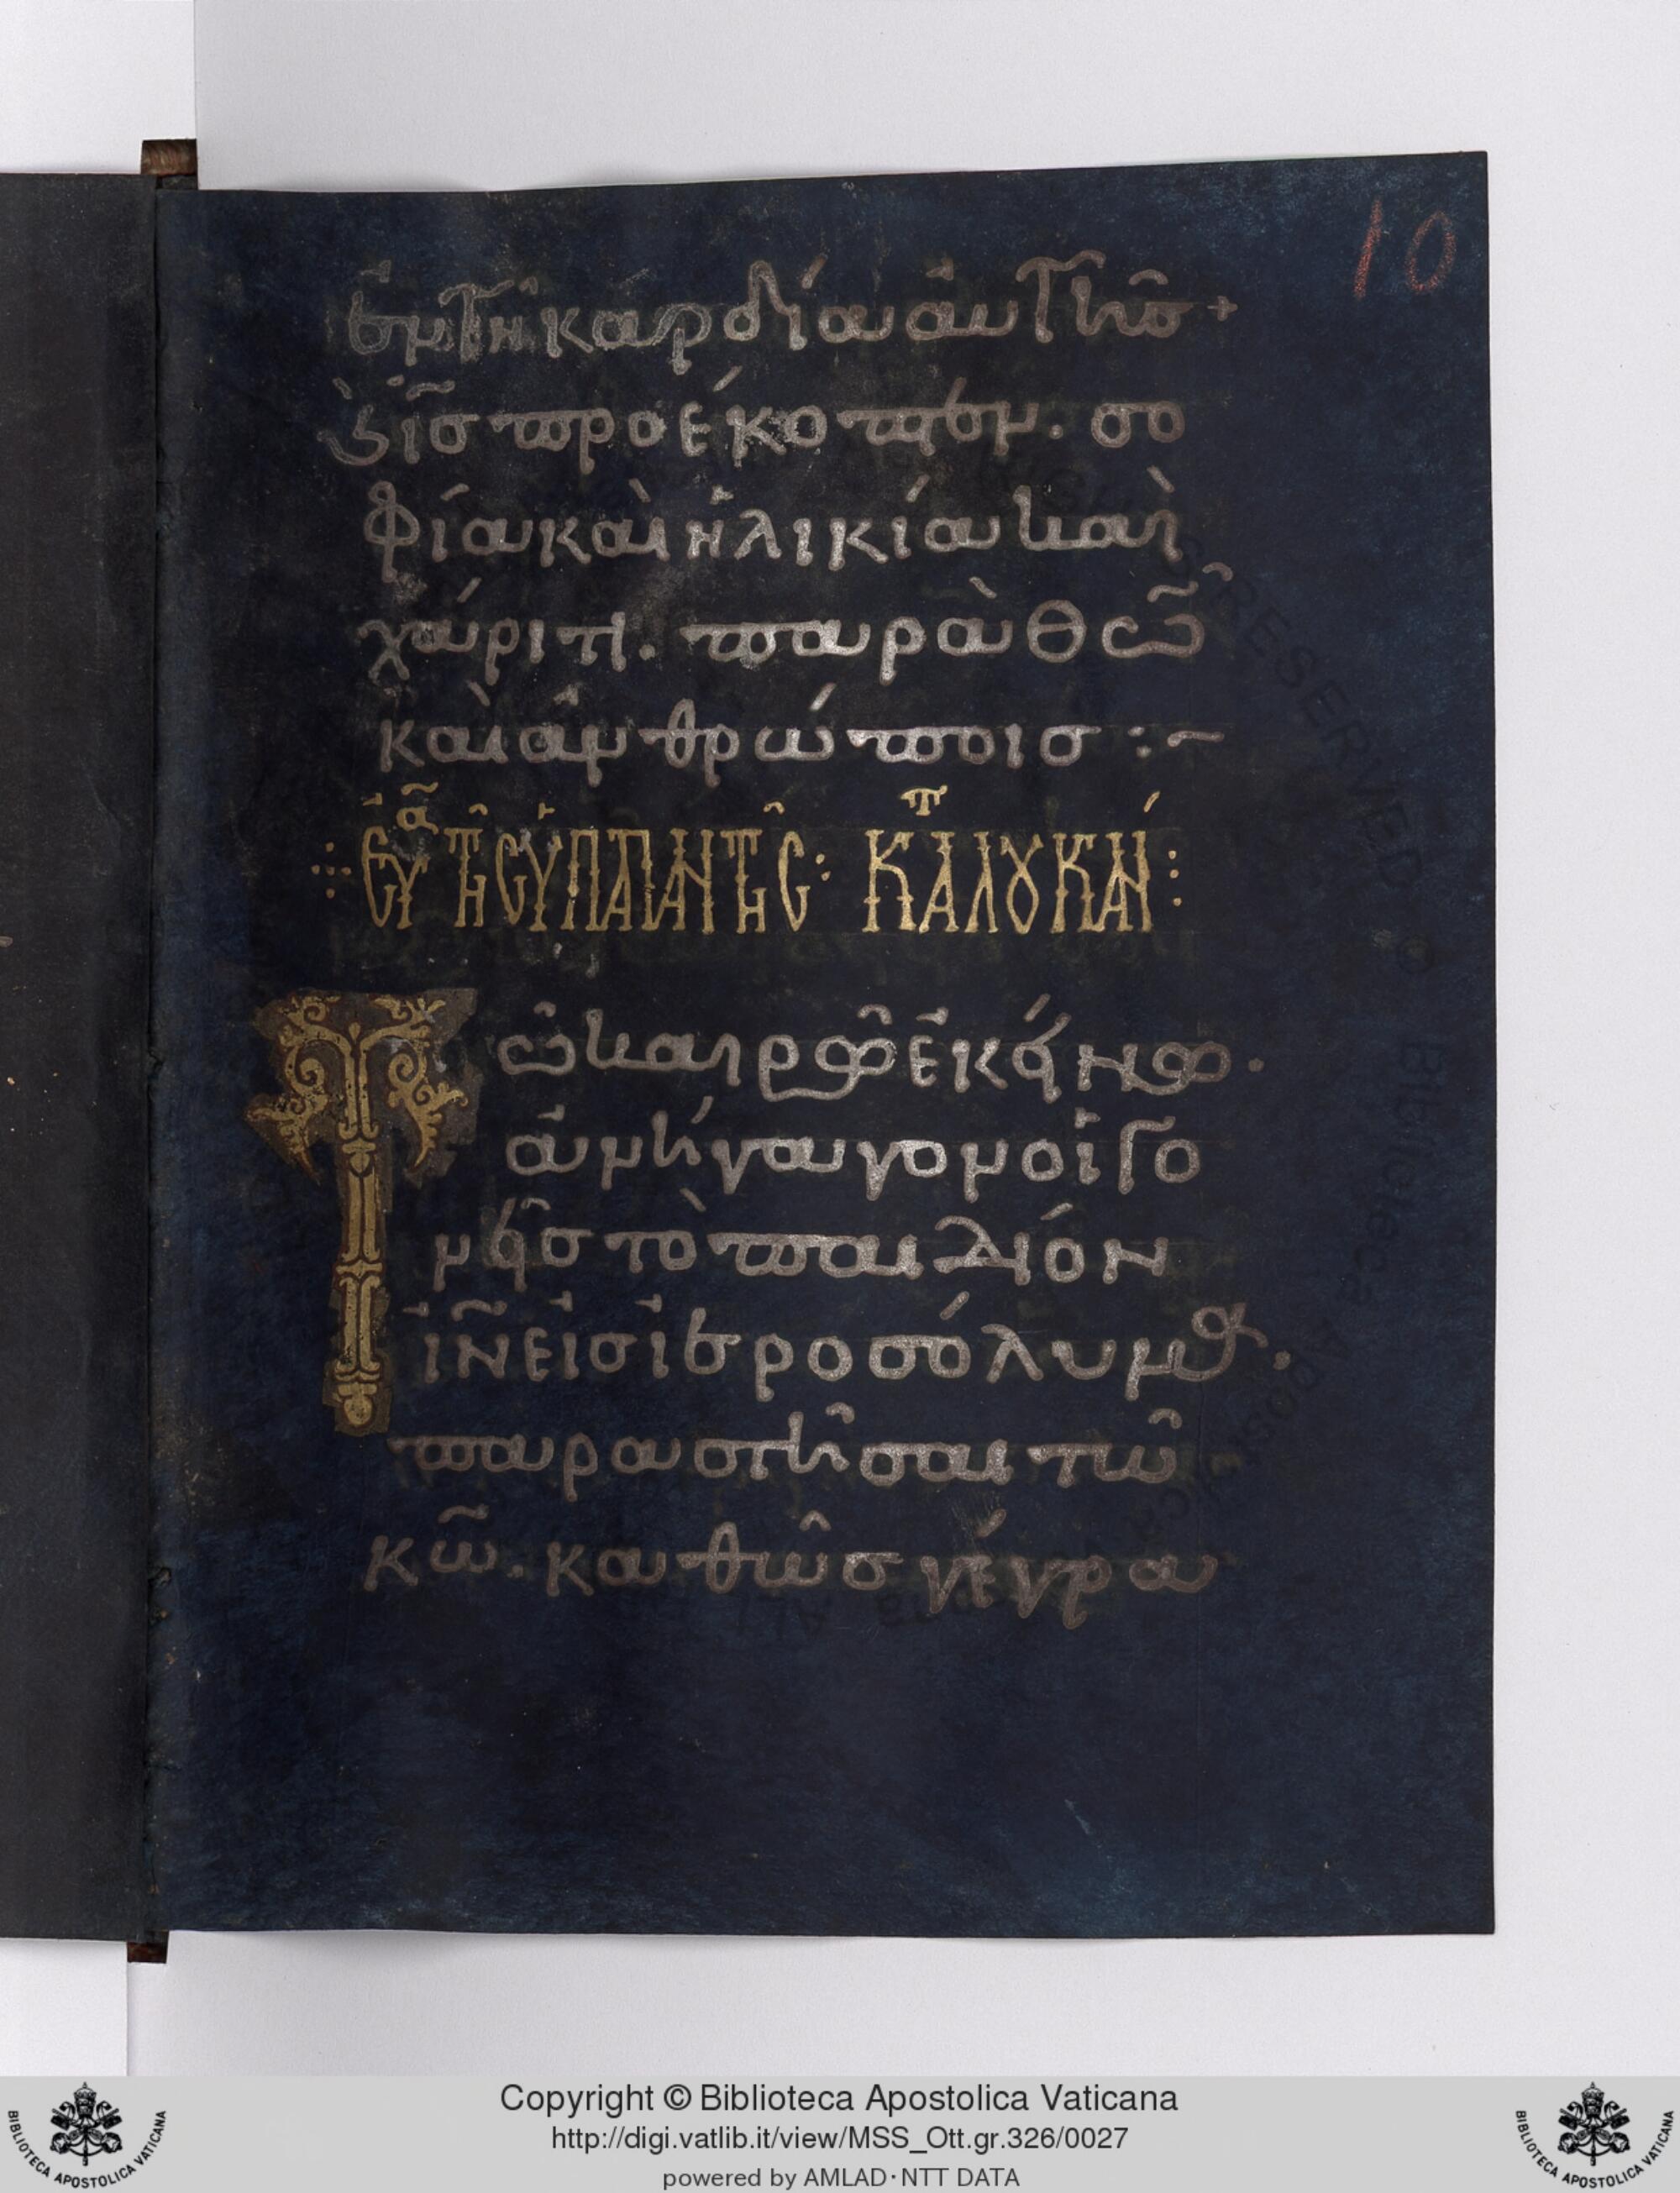 10
ἐν τῆ καρδία αὐτῆσ +
ὁ ἰ̅σ̅ προέκοπτεν. σο
φία καὶ ἡλικία καὶ
χάριτι. παρὰ θ̅ω̅
καὶ ἀνθρώποισ :~
ΕΥα ΤΗC ΥΠΑΠΑΝΤΗC: ΚΑΤ ΛΟΥΚΑΝ:
Τῶ καιρῶ ἐκείνω.
ἀνήγαγον οἱ γο
νεῖσ τὸ παιδίον
ἰ̅ν̅ εἰσ ἱεροσόλυμα.
παραστῆσαι τῶ
κ̅ω̅. καθὼσ γέγρα
Copyright © Biblioteca Apostolica Vaticana
http://digi.vatlib.it/view/MSS_Ott.gr.326/0027
powered by AMLAD·NTT DATA
BIBLIOTECA APOSTOLICA VATICANA
BIBLIOTECA APOSTOLICA VATICANA